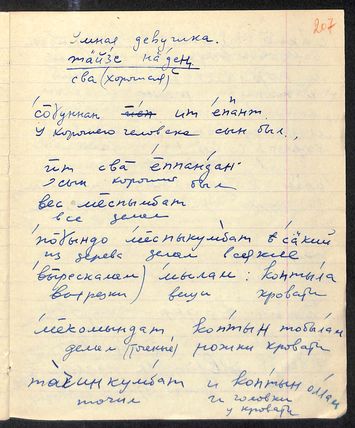 207
Умная девушка.
та̄йзе на̄ден
сва (хорошая)
со̄дуннан ит е́пант
у хорошего человека сын был.,
ӣт сва е̄ппа́ндан
сын хороший был
вес ме̄спымбат
все делал
по̄дындо ме̄спыкумбат вса́кий
из дерева делал всякие
вы́рескалам) мы́лам: ко́птыла
вырезки) вещи кровати
ме̄комындат ко́птын тобылам
делал (точеные) ножки кровати
та̄чинкумбат и ко́птын оллам
точил и головки
у кровати